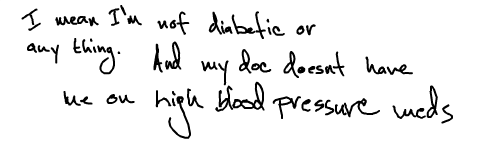 I mean I'm not diabetic or
any thing. And my doc doesnt have
me on high blood pressure meds